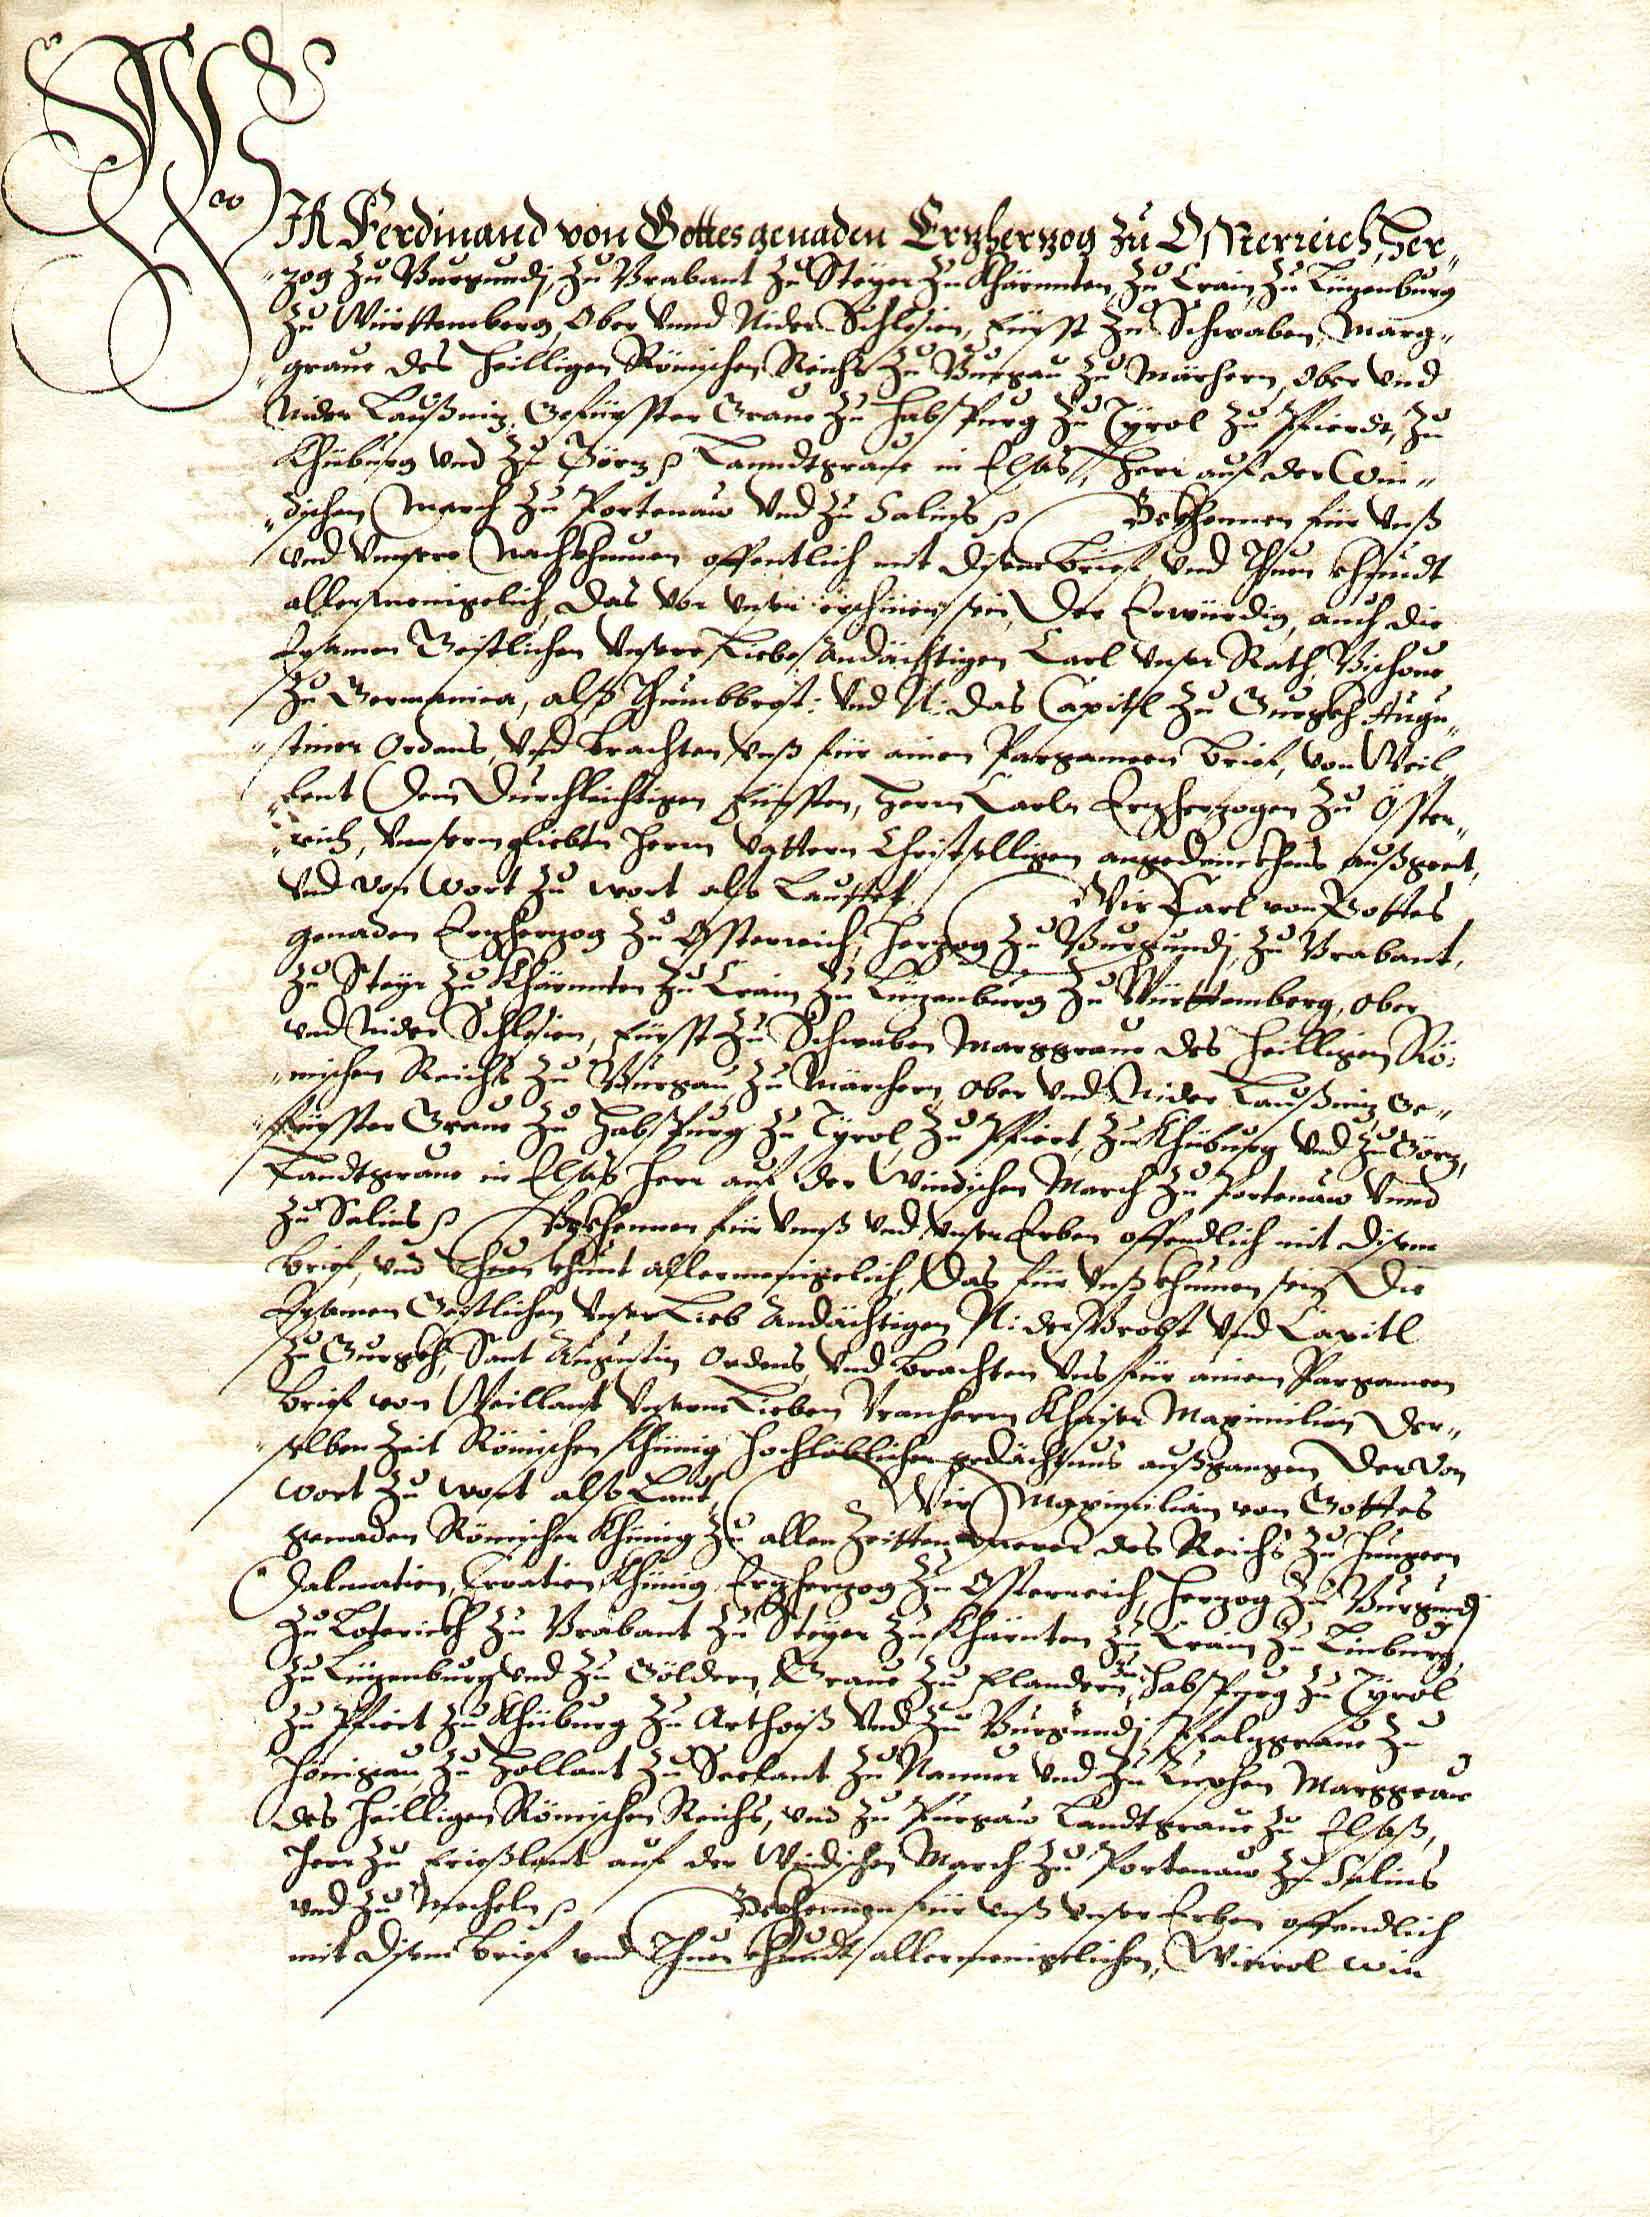 WIR Ferdinand von Gottes genaden Erzherzog zu Ossterreich, Her„
„zog zu Burgundj, zu Brabant zu Steyer zu Khärnnten, zu Crain, zu Lüzenburg
zu Württemberg, Ober vnnd Nider Schlesien, Fürsst zu Schwaben, Marg„
„graue des Heilligen Römischen Reichs zu Burgau zu Märhern, Ober vnd
Nider Laußniz, Gefürsster Graue zu Habspurg zu Tyrol zu Pfierdt, zu
Khüburg vnd zu Görz Lanndtgraue in Elsäs, Herr auf der Win„
„dischen March zu Portenaw vnd zu Salins Bekhennen für vnß
vnd vnnsere Nachkhumen offentlich mit disem brief, vnd Thuen khundt
allermenigelich, das vor vnser erschinen sein, der Erwürdig, auch die
Ersamen Geistlichen vnsere Liebe Andächtigen Carl vnser Rath, Bischoue
zu Germanica, alß Thumbbrost: vnd N: das Capitl zu Gurgkh Augu„
„stiner Ordens, vnd brachten vnß für ainen Pargameen brief, von Weil„
„lent dem Durchleichtigen Fürssten, Herrn Carln Erzherzogen zu Össter„
„reich, vnnserm gliebten Herrn vattern Christselligen angedenckhens außgeet,
vnd von wort zu wort also Lauttet Wir Carl von Gottes
genaden Erzherzog zu Össterreich, Herzog zu Burgundj, zu Brabant,
zu Steyr zu Khärnnten zu Crain zu Lüzenburg zu Württemberg, ober
vnd Nider Schlesien, Fürsst zu Schwaben Marggraue des Heilligen Rö„
„mischen Reichs zu Burgau, zu Märchern, ober vnd Nider Laußniz Ge„
„fürsster Graue zu Habspurg zu Tyrol, zu Pfiert, zu Khüburg vnd zu Görz,
Landtgraue in Elsäs Herr auf der Windischen March zu Portenaw vnnd
zu Salins Bekhennen für vnnß vnd vnser Erben offendlich mit disem
brief, vnd Thuen khunt allermenigelich, Das für vnß khumen sein die
Ersamen Geistlichen vnser Lieb Andächtigen N: der Probst vnd Capitl
zu Gurgkh, Sant Augustin Ordens, vnd brachten vns für ainem Pargameen
brief von Weillant vnserm Lieben Vranherrn Khaiser Maximilian Der„
„selben Zeit Römischen Khünig Hochlöblicher gedächtnus außgangen der von
wort zu wort also Laut, Wir Maximilian von Gottes
genaden Römischer Khünig zu allen Zeitten Merer des Reichs zu Hungern
Dalmatien, Croatien, Khünig, Erzherzog zu Össterreich, Herzog zu Burgundj
zu Loterickh zu Brabant zu Steyer zu Khärnten zu Crain zu Linburg,
zu Lüzenburg vnd zu Göldern, Graue zu Flandern, zu Habspurg zu Tyrol
zu Pfiert zu Khüburg zu Arthoiß vnd zu Burgundj Pfalzgraue zu
Henigau, zu Hollant zu Seelant zu Namur vnd zu Zuphen Marggraue
des Heilligen Römischen Reichs, vnd zu Purgaw Landtgraue zu Elsäß,
Herr zu Frießlant auf der Windischen March zu Portenaw zu Salins
vnd zu Mecheln Bekhennen für vnß vnser Erben offendlich
mit disem brief vnd Thuen khundt allermenigelichen, Wiewol win